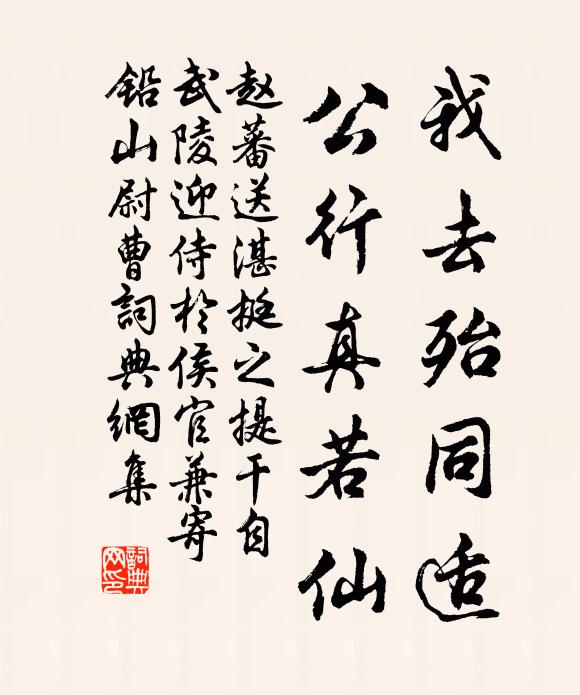 我去殆同适
公行真若仙
赵蕃送湛挺之提干自
武陵迎侍於侯官兼寄
铅山尉曹詞典網集
詞典
网印